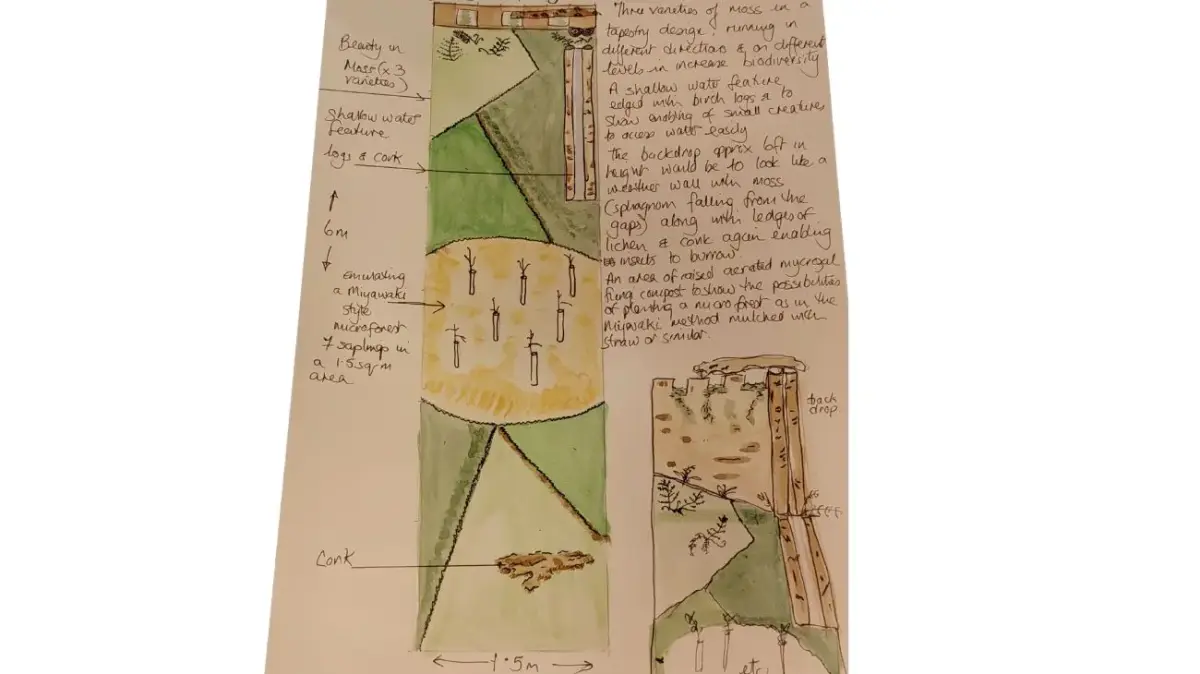 Beauty in
Moss (x 3
varieties)
Shallow water
feature
logs & cork
6m
emulating
a Miyawaki
style
microforest
7 saplings in
a 1.5sq m
area
Cork
1.5m
Three varieties of moss in a
tapestry design running in
different directions & on different
levels in increase biodiversity
A shallow water feature
edged with birch logs & to
show enabling of small creatures
to access water easily
the backdrop approx 6ft in
height would be to look like a
weather wall with moss
(sphagnom falling from the
gaps) along with ledges of
lichen & cork again enabling
insects to burrow.
An area of raised aerated
compost to show the possibilities
of planting a microforest as in the
Miyawaki method mulched with
straw or similar.
back
drop
etc